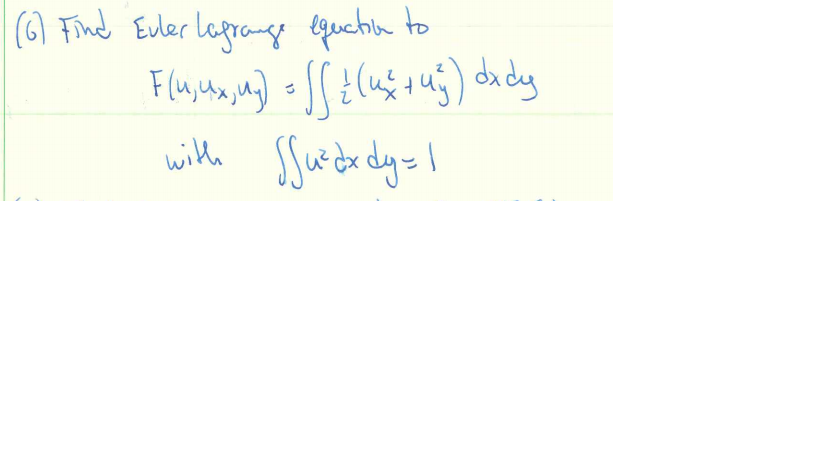 (6) Find Euler Lagrange equation to
F(u,ux,uy) = ∬ 1/2 (ux² + uy²) dx dy
with ∬ u² dx dy = 1